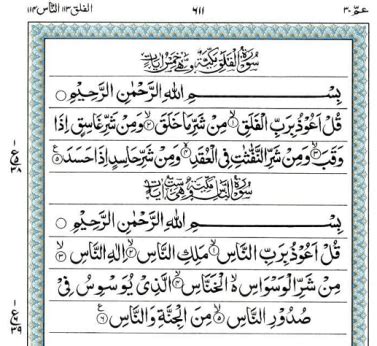 عمّ ٣٠ ٦١١ الفلق ١١٣ الناس ١١٤
سُوْرَةُ الْفَلَقِ مَكِّيَّةٌ وَّهِيَ خَمْسُ اٰيَاتٍ
بِسْمِ اللّٰهِ الرَّحْمٰنِ الرَّحِيْمِ
قُلْ اَعُوْذُ بِرَبِّ الْفَلَقِ ۙ۱ مِنْ شَرِّ مَا خَلَقَ ۙ۲ وَمِنْ شَرِّ غَاسِقٍ اِذَا
وَقَبَ ۙ۳ وَمِنْ شَرِّ النَّفّٰثٰتِ فِي الْعُقَدِ ۙ۴ وَمِنْ شَرِّ حَاسِدٍ اِذَا حَسَدَ ۵
سُوْرَةُ النَّاسِ مَكِّيَّةٌ وَّهِيَ سِتُّ اٰيَاتٍ
بِسْمِ اللّٰهِ الرَّحْمٰنِ الرَّحِيْمِ
قُلْ اَعُوْذُ بِرَبِّ النَّاسِ ۙ۱ مَلِكِ النَّاسِ ۙ۲ اِلٰهِ النَّاسِ ۙ۳
مِنْ شَرِّ الْوَسْوَاسِ ەۙ الْخَنَّاسِ ۙ۴ الَّذِيْ يُوَسْوِسُ فِيْ
صُدُوْرِ النَّاسِ ۙ۵ مِنَ الْجِنَّةِ وَالنَّاسِ ۶